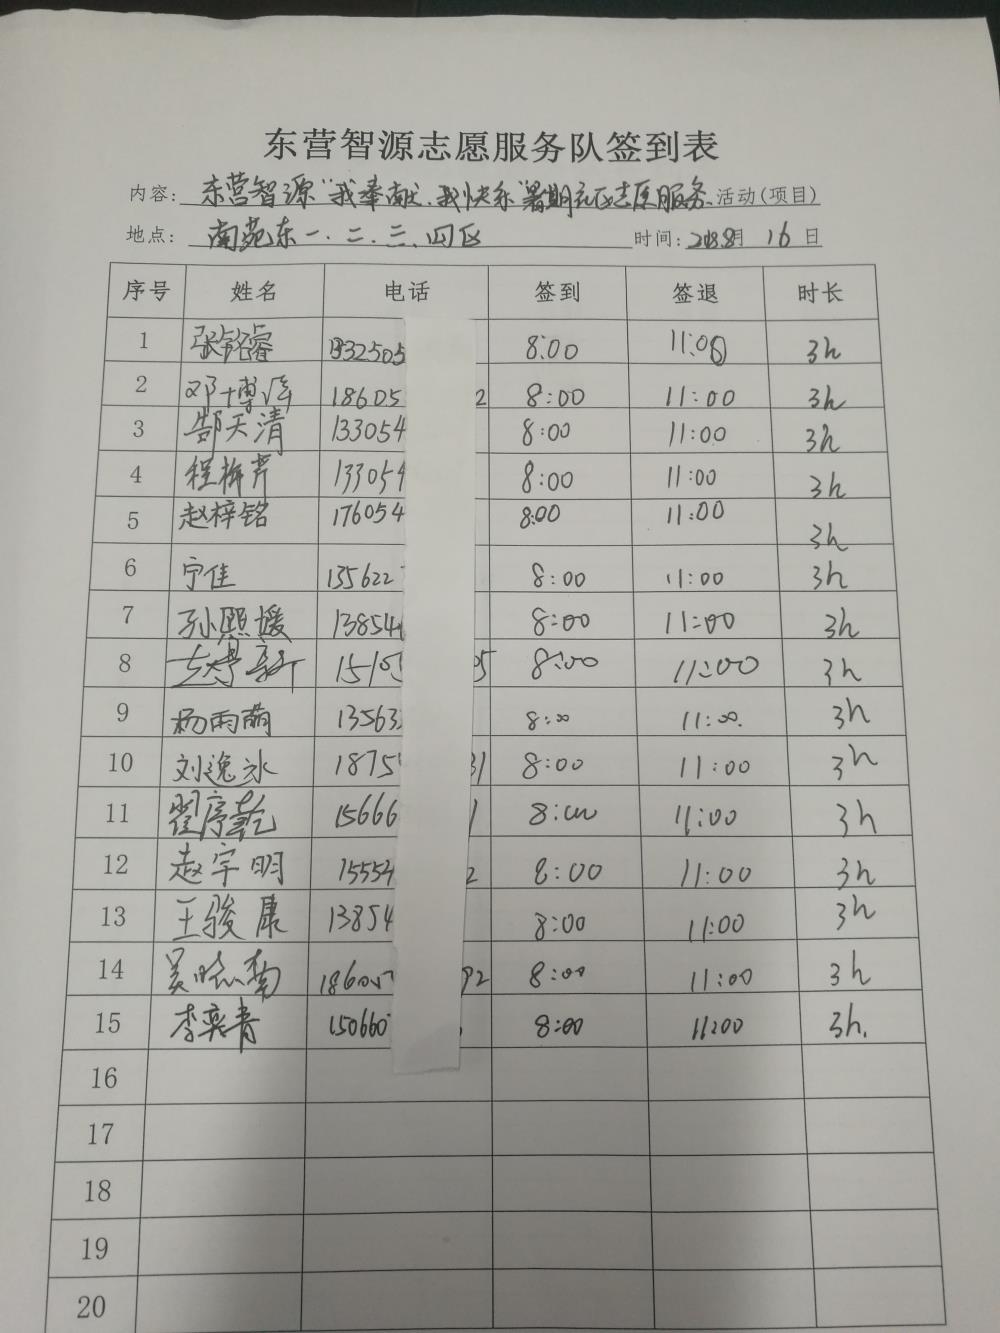 东营智源志愿服务队签到表
内容: 东营智源"我奉献、我快乐"暑期社区志愿服务 活动(项目)
地点: 南苑东一、二、三、四区 时间: 月 16 日
序号 姓名 电话 签到 签退 时长
1 张铭睿 1332505 8:00 11:00 3h
2 邓博 18605 2 8:00 11:00 3h
3 郜天清 133054 8:00 11:00 3h
4 程梅芹 133054 8:00 11:00 3h
5 赵梓铭 176054 8:00 11:00 3h
6 宁佳 135622 8:00 11:00 3h
7 孙熙媛 13854 8:00 11:00 3h
8 15105 05 8:00 11:00 3h
9 杨雨萌 13563 8:00 11:00. 3h
10 刘逸冰 1875 31 8:00 11:00 3h
11 翟序乾 15666 1 8:00 11:00 3h
12 赵宇明 15554 2 8:00 11:00 3h
13 王骏康 13854 8:00 11:00 3h
14 吴晓菊 18605 92 8:00 11:00 3h
15 李奕青 150660 8:00 11:00 3h.
16
17
18
19
20